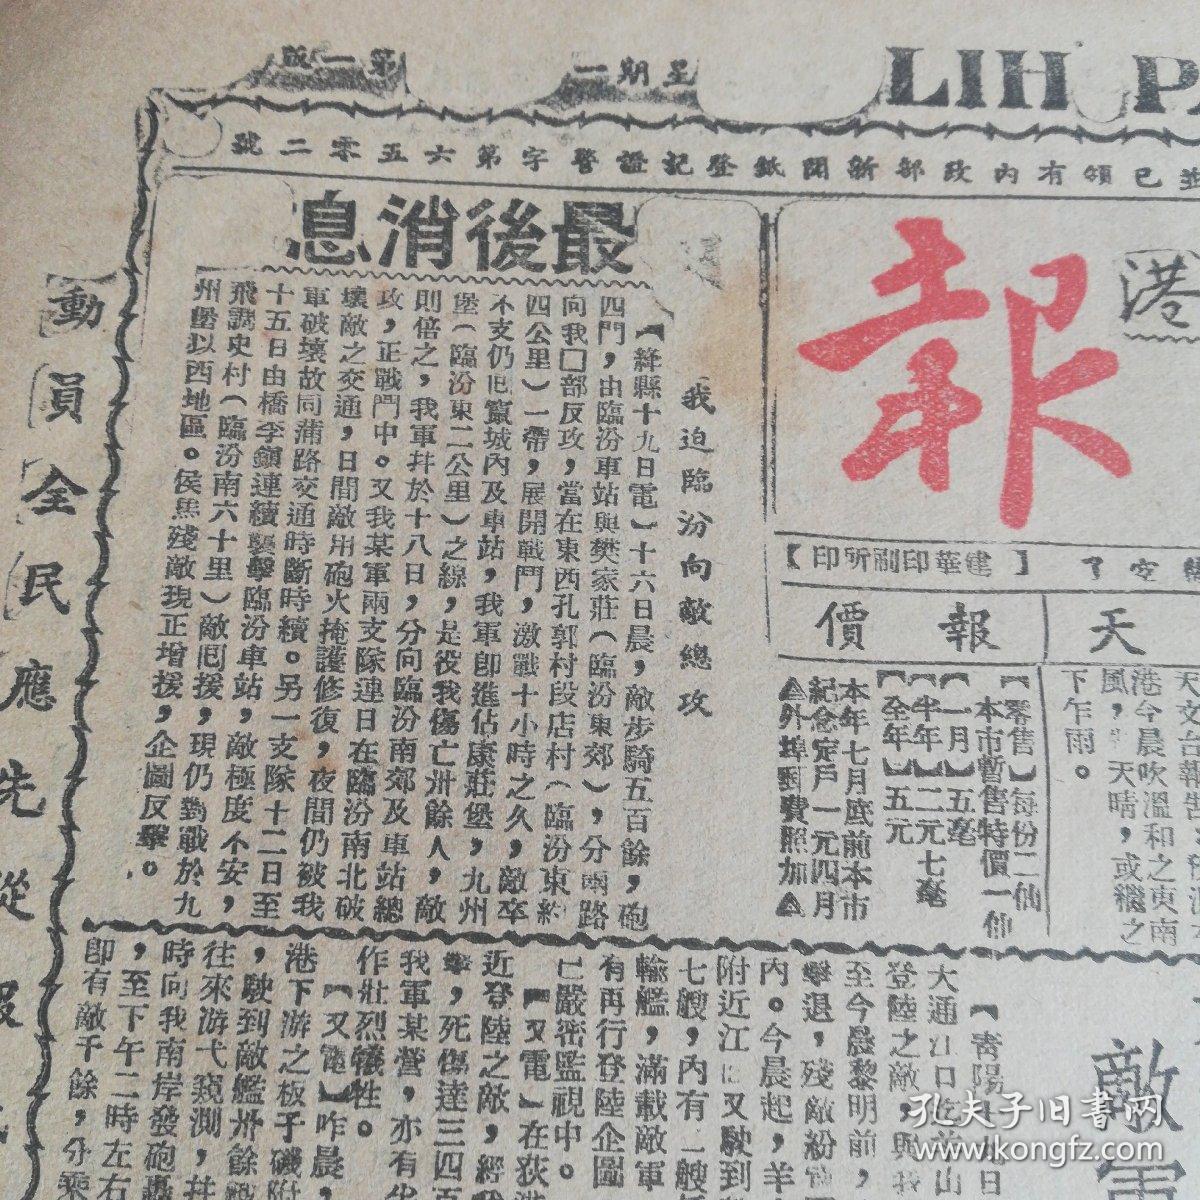 LIH PA
星期一
第一版
並已領有內政部新聞紙登記證警字第六五零二號
港
報
【建華印刷所印】
天
報價
天文台報告
港今晨吹溫和之東南
風，天晴，或繼之
下乍雨。
【零售】每份二仙
本市暫售特價一仙
【一月】五毫
【半年】二元七毫
【全年】五元
本年七月底前本市
紀念定戶一元四月
▲外埠郵費照加▲
最後消息
我迫臨汾向敵總攻
【絳縣十九日電】十六日晨，敵步騎五百餘，砲
四門，由臨汾車站與樊家莊（臨汾東郊），分兩路
向我囗部反攻，當在東西孔郭村段店村（臨汾東約
四公里）一帶，展開戰鬥，激戰十小時之久，敵卒
不支仍回竄城內及車站，我軍卽進佔康莊堡，九州
堡（臨汾東二公里）之線，是役我傷亡卅餘人，敵
則倍之，我軍幷於十八日，分向臨汾南郊及車站總
攻，正戰鬥中。又我某軍兩支隊連日在臨汾南北破
壞敵之交通，日間敵用砲火掩護修復，夜間仍被我
軍破壞故同蒲路交通時斷時續。另一支隊十二日至
十五日由橋李鎮連續襲擊臨汾車站，敵極度不安，
飛調史村（臨汾南六十里）敵囘援，現仍對戰於九
州堡以西地區。侯馬殘敵現正增援，企圖反擊。
動員全民應先從
敵軍
【靑陽十九日
大通江口
登陸之敵，與我
至今晨黎明前，
擊退，殘敵紛
內。今晨起，羊
附近江又駛到
七艘，內有二艘
輸艦，滿載敵軍
有再行登陸企圖
已嚴密監視中。
【又電】在荻港
近登陸之敵，經我
擊，死傷達三四百
我軍某營，亦有
作壯烈犧牲。
【又電】昨晨，
港下游之板子磯附
，駛到敵艦卅餘艘
往來游弋窺測，幷
時向我南岸發砲轟
，至下午二時左右
卽有敵千餘，分乘
孔夫子旧书网
www.kongfz.com